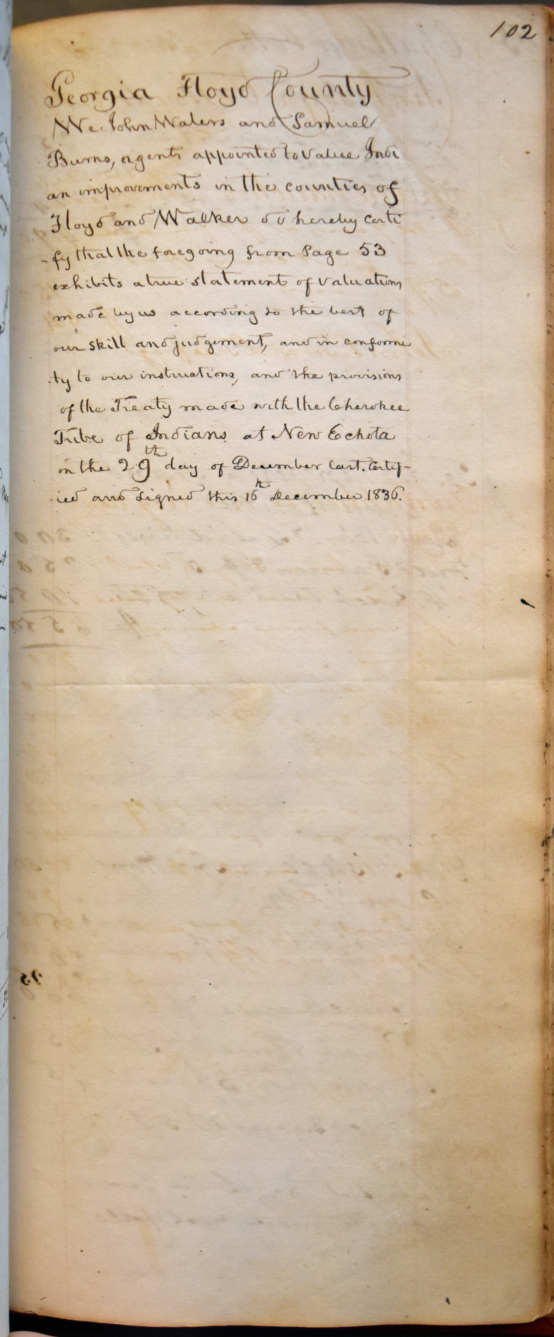 102
Georgia Floyd County
We John Waters and Samuel
Burns, agents appointed to value Indi
an improvements in the counties of
Floyd and Walker do hereby certi
-fy that the foregoing from Page 53
exhibits a true statement of valuations
made by us according to the best of
our skill and judgement, and in conformi
ty to our instructions, and the provisions
of the Treaty made with the Cherokee
Tribe of Indians at New Echota
on the 29th day of December last. Certif-
ied and signed this 16th December 1836.